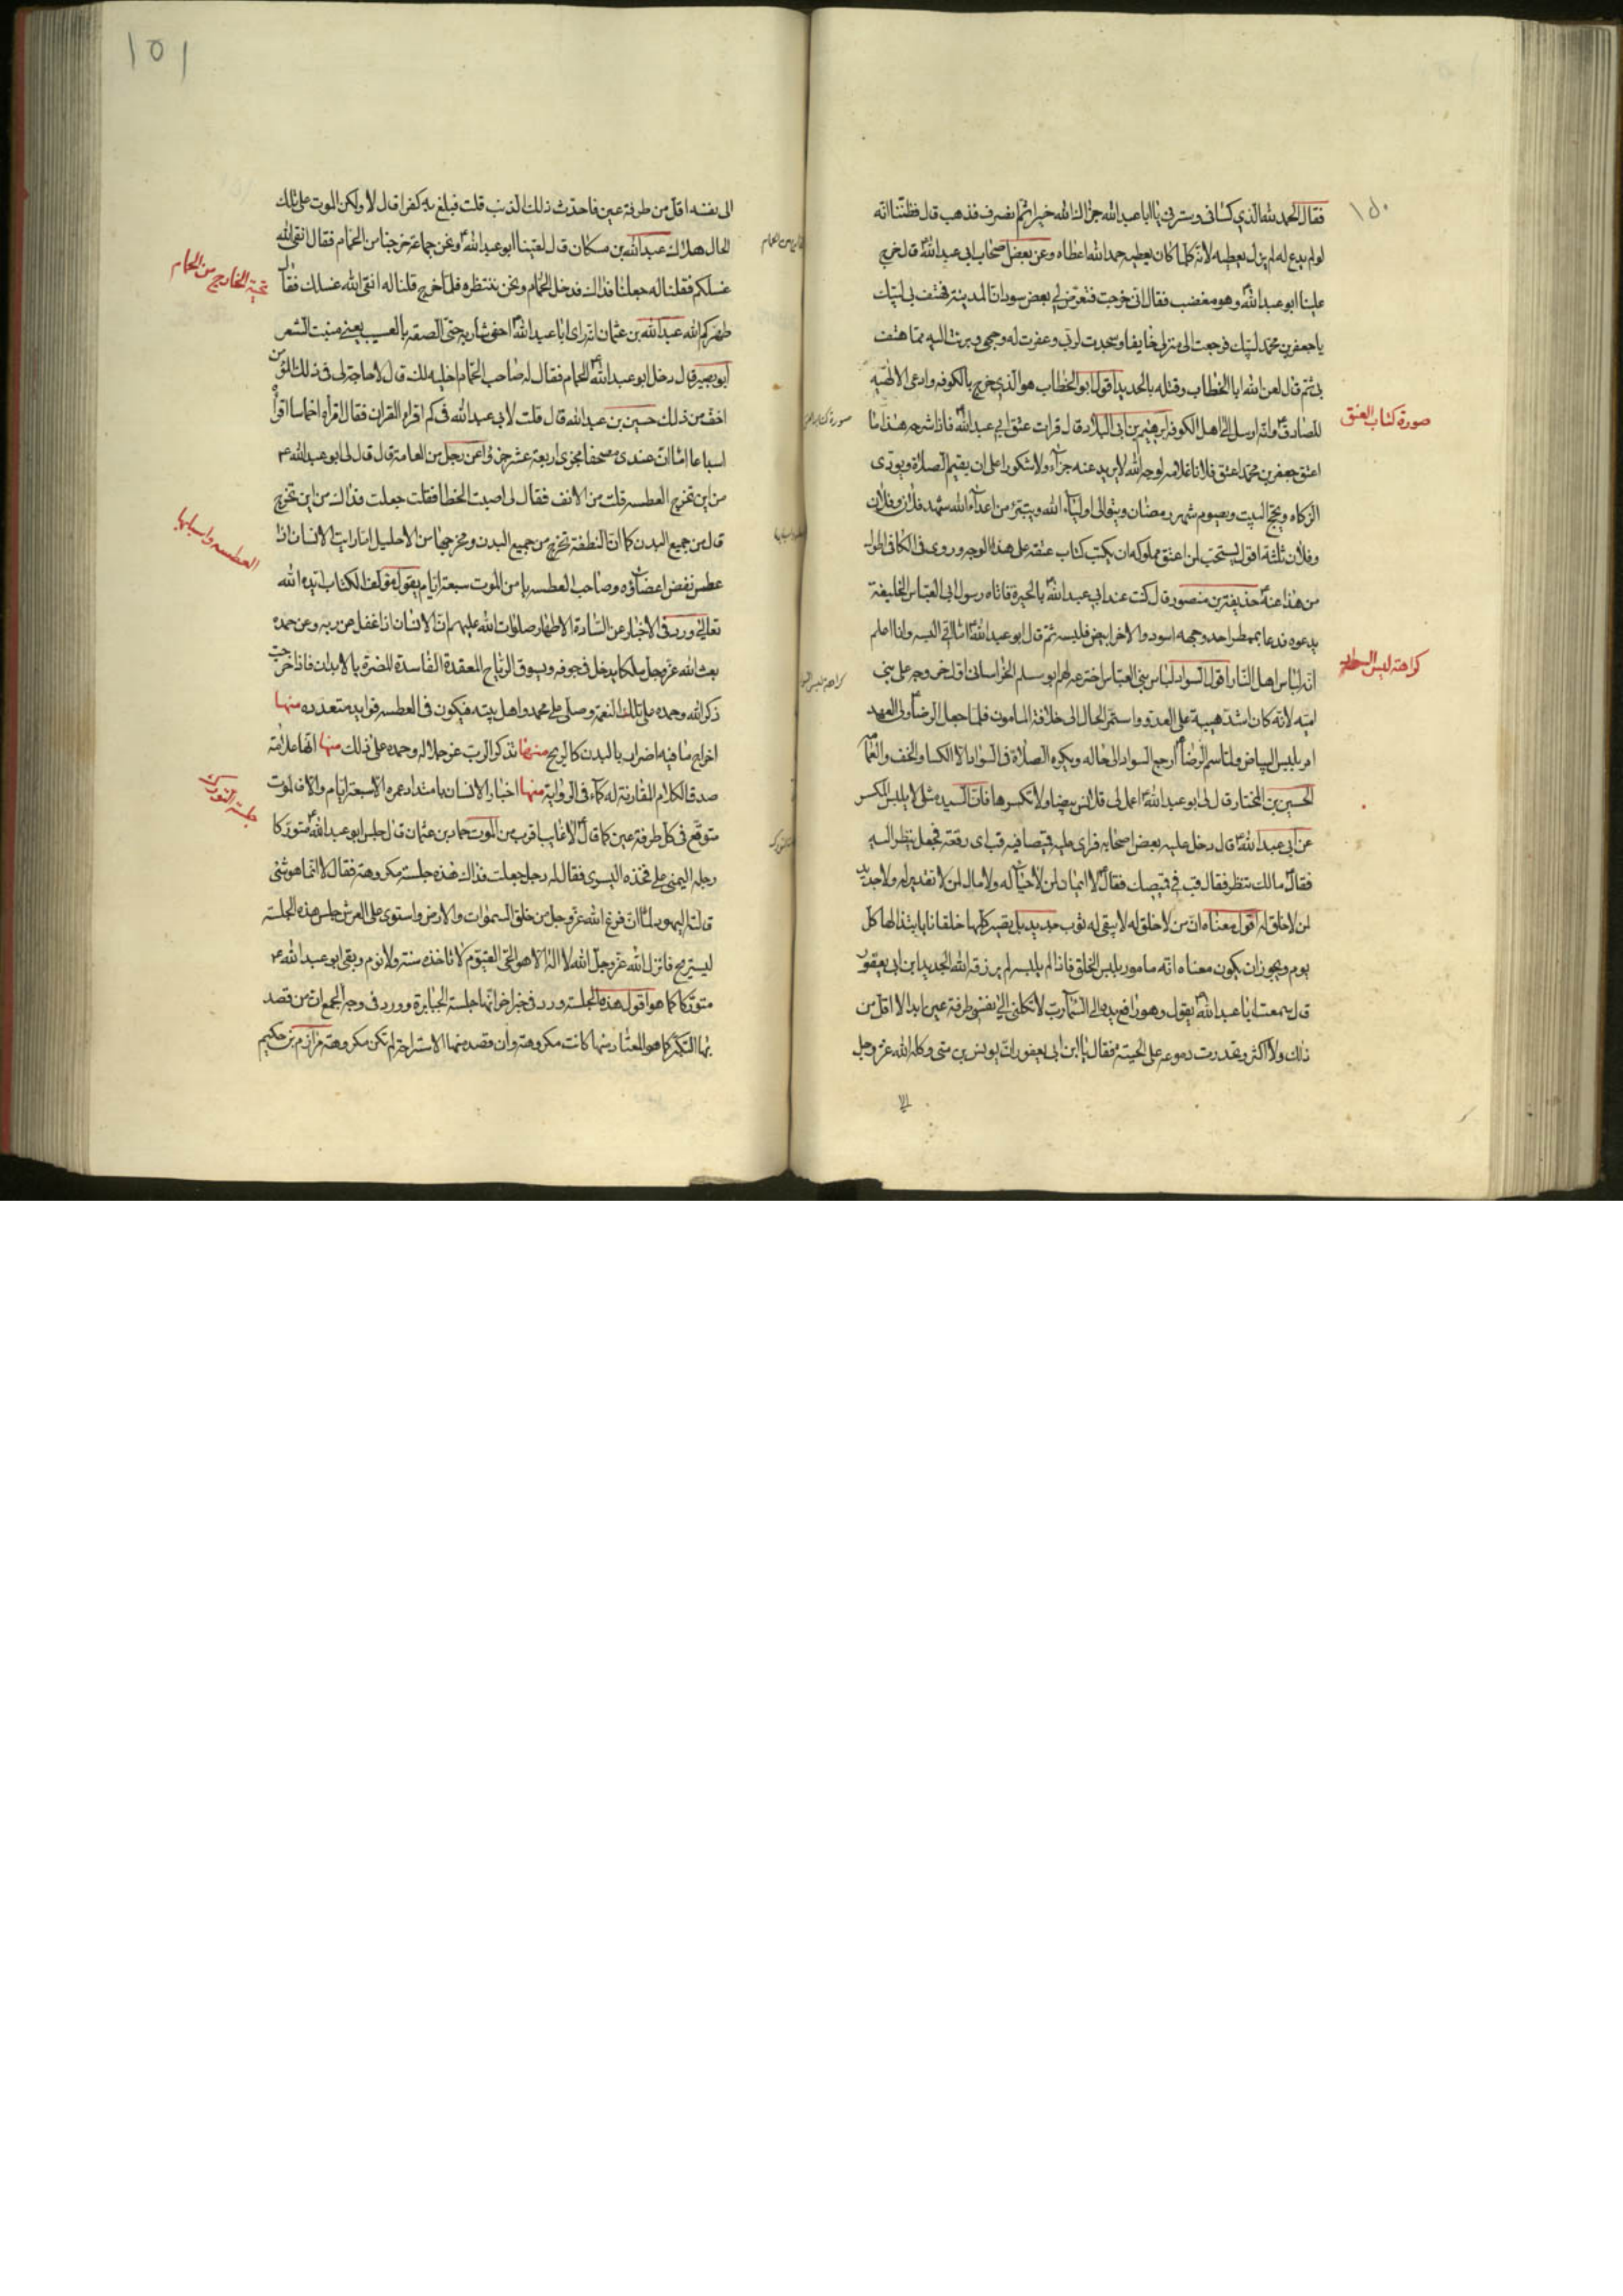 ١٥٠
فقال الحمد لله الذي كساني وسترني يا ابا عبد الله جزاك الله خيرا ثم انصرف فذهب قال فظننا انه
لو لم يدع له لم يزل يعطيه لانه كلما كان يعطيه حمد الله اعطاه وعن بعض اصحاب ابي عبد الله ع قال خرج
علينا ابو عبد الله ع وهو مغضب فقال اني خرجت فتعرض لي بعض سودان المدينة فهتف بي لبيك
يا جعفر بن محمد لبيك فرجعت الى منزلي خايفا وسجدت لربي وعفرت له وجهي وبرئت اليه مما هتف
بي ثم قال لعن الله ابا الخطاب وقتله بالحديد اقول ابو الخطاب هو الذي خرج بالكوفه وادعى الالهيه
للصادق ع وانه ارسل الى اهل الكوفه ابرهيم بن ابي البلاد قال قرات عتق ابي عبد الله ع فاذا شرحه هذا ما
صورة كتاب العتق
اعتق جعفر بن محمد اعتق فلانا غلامه لوجه الله لا يريد عنه جزاء ولا شكورا على ان يقيم الصلاة ويودى
الزكاه ويحج البيت ويصوم شهر رمضان ويتوالى اولياء الله ويتبرء من اعداء الله شهد فلان وفلان
وفلان ثلثة اقول يستحب لمن اعتق مملوكه ان يكتب كتاب عتقه على هذا الوجه وروى في الكافي اطول
من هذا عنه ع حذيفة بن منصور قال كنت عند ابي عبد الله ع بالحيرة فاتاه رسول ابي العباس الخليفة
يدعوه فدعا بممطر احد وجهيه اسود والاخر ابيض فلبسه ثم قال ابو عبد الله ع اما اني البسه وانا اعلم
انه لباس اهل النار اقول السواد لباس بني العباس اخترعه لهم ابو مسلم الخراساني اول خروجه على بني
كراهة لبس السواد
اميه لانه كان اشد هيبة على العدو واستمر الحال الى خلافة المامون فلما جعل الرضا ع ولي العهد
امر بلبس البياض ولما سم الرضا ع ارجع السواد الى حاله ويكره الصلاة في السواد الا الكسا والخف والعمامه
الحسين بن المختار قال لي ابو عبد الله ع اعمل لي قلانس بيضا ولا تكسرها فان السيد مثلي لا يلبس المكسر
عن ابي عبد الله ع قال دخل عليه بعض اصحابه فراى عليه قميصا فيه قب اي رقعة فجعل ينظر اليه
فقال ع مالك تنظر فقال قب في قميصك فقال ع لا ايمان لمن لا حياء له ولا مال لمن لا تقدير له ولا جديد
لمن لا خلق له اقول معناه ان من لا خلق له لا يبقى له ثوب جديد بل يصير كلها خلقانا بابتذالها كل
يوم ويجوز ان يكون معناه انه مامور بلبس الخلق فاذا لم يلبسه لم يرزقه الله الجديد ابن ابي يعفور
قال سمعت ابا عبد الله ع يقول وهو رافع يده الى السماء رب لا تكلني الى نفسي طرفة عين ابدا لا اقل من
ذلك ولا اكثر وتحدرت دموعه على لحيته فقال يا ابن ابي يعفور ان يونس بن متى وكله الله عز وجل
الى
١٥١
الى نفسه اقل من طرفة عين فاحدث ذلك الذنب قلت فبلغ به كفرا قال لا ولكن الموت على تلك
الحال هلاك عبد الله بن مسكان قال لقينا ابو عبد الله ع ونحن جماعة خرجنا من الحمام فقال انقى الله
تحية الخارج من الحمام
غسلكم فقلنا له جعلنا فداك فدخل الحمام ونحن ننتظره فلما خرج قلنا له انقى الله غسلك فقال
طهركم الله عبد الله بن عثمان انه راى ابا عبد الله ع احفى شاربه حتى الصقه بالعسيب يعني منبت الشعر
ابو بصير قال دخل ابو عبد الله ع الحمام فقال له صاحب الحمام اخليه لك قال لا حاجة لي في ذلك المؤمن
اخف من ذلك حسين بن عبد الله قال قلت لابي عبد الله في كم اقراء القران فقال اقراه اخماسا اقراه
اسباعا اما ان عندي مصحفا مجزى اربعة عشر جزءا عن رجل من العامة قال قال لي ابو عبد الله ع
من اين تخرج العطسه قلت من الانف فقال لي اصبت الخطا فقلت جعلت فداك من اين تخرج
قال من جميع البدن كما ان النطفة تخرج من جميع البدن ومخرجها من الاحليل اما رايت الانسان اذا
العطسه واسبابها
عطس نفض اعضاؤه وصاحب العطسه يامن الموت سبعة ايام يقول مؤلف الكتاب ايده الله
تعالى ورد في الاخبار عن السادة الاطهار صلوات الله عليهم ان الانسان اذا غفل عن ربه وعن حمده
بعث الله عز وجل ملكا يدخل في جوفه ويسوق الرياح المعقدة الفاسدة المضرة بالابدان فاذا خرجت
ذكر الله وحمده على تلك النعمة وصلى على محمد واهل بيته فيكون في العطسه فوايد متعدده منها
اخراج ما فيه اضرار بالبدن كالريح منها تذكر الرب عز جلاله وحمده على ذلك منها انها علامة
صدق الكلام المقارنة له كما في الرواية منها اخبار الانسان بامتداد عمره الا سبعة ايام والا فالموت
متوقع في كل طرفة عين كما قال ع لا غايب اقرب من الموت حماد بن عثمان قال جلس ابو عبد الله ع متوركا
جلسة التورك
رجله اليمنى على فخذه اليسرى فقال له رجل جعلت فداك هذه جلسة مكروهة فقال لا انما هو شئ
قالته اليهود لما ان فرغ الله عز وجل من خلق السموات والارض واستوى على العرش جلس هذه الجلسة
ليستريح فانزل الله عز وجل الله لا اله الا هو الحي القيوم لا تاخذه سنة ولا نوم وبقى ابو عبد الله ع
متوركا كما هو اقول هذه الجلسة ورد في خبر اخر انها جلسة الجبابرة وورد في وجه الجمع ان من قصد
بها التكبر كما هو المعتاد منها كانت مكروهة وان قصد منها الاستراحة لم تكن مكروهة مرازم بن حكيم